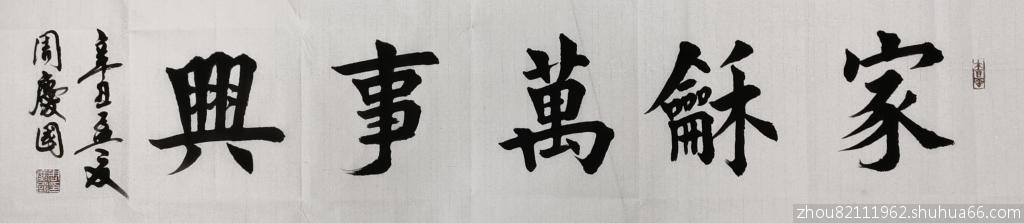 家龢萬事興
辛丑孟夏
周慶國
zhou82111962.shuhua66.com